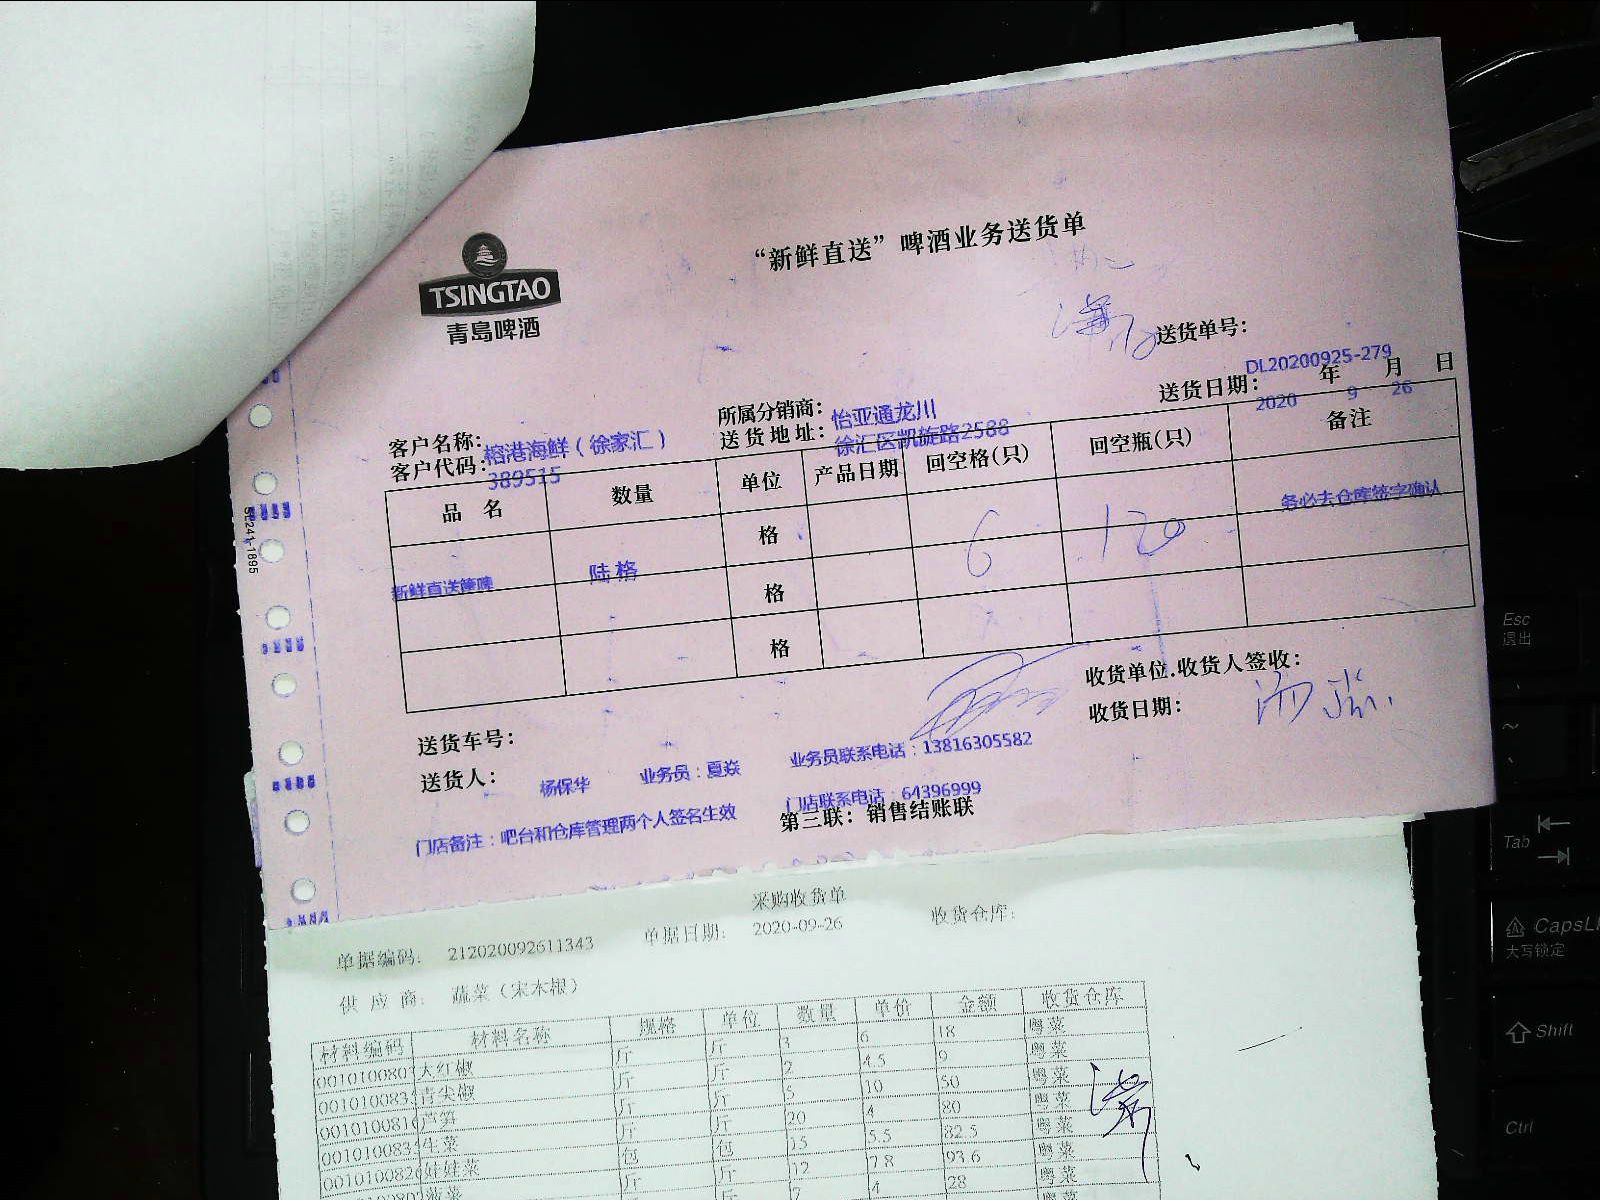 “新鲜直送”啤酒业务送货单
TSINGTAO
青岛啤酒
送货单号：
DL20200925-279
送货日期： 2020 年 9 月 26 日
所属分销商： 怡亚通龙川
客户名称： 榕港海鲜（徐家汇）
送货地址： 徐汇区凯旋路2588
客户代码： 389515
品名 数量 单位 产品日期 回空格(只) 回空瓶(只) 备注
格 务必去仓库签字确认
新鲜直送 陆格 格 6 120
格
SL241-1895
收货单位.收货人签收：
收货日期：
送货车号：
送货人： 杨保华 业务员：夏焱 业务员联系电话：13816305582
门店联系电话：64396999
门店备注：吧台和仓库管理两个人签名生效
第三联：销售结账联
采购收货单
单据编码: 212020092611343 单据日期: 2020-09-26 收货仓库:
供应商: 蔬菜（宋木根）
材料编码 材料名称 规格 单位 数量 单价 金额 收货仓库
00101008 大红椒 斤 斤 3 6 18 粤菜
00101008 青尖椒 斤 斤 2 4.5 9 粤菜
00101008 芦笋 斤 斤 5 10 50 粤菜
00101008 生菜 斤 斤 20 4 80 粤菜
00101008 娃娃菜 包 包 15 5.5 82.5 粤菜
菠菜 斤 斤 12 7.8 93.6 粤菜
7 4 28 粤菜
Esc
退出
Tab
CapsL
大写锁定
Shift
Ctrl